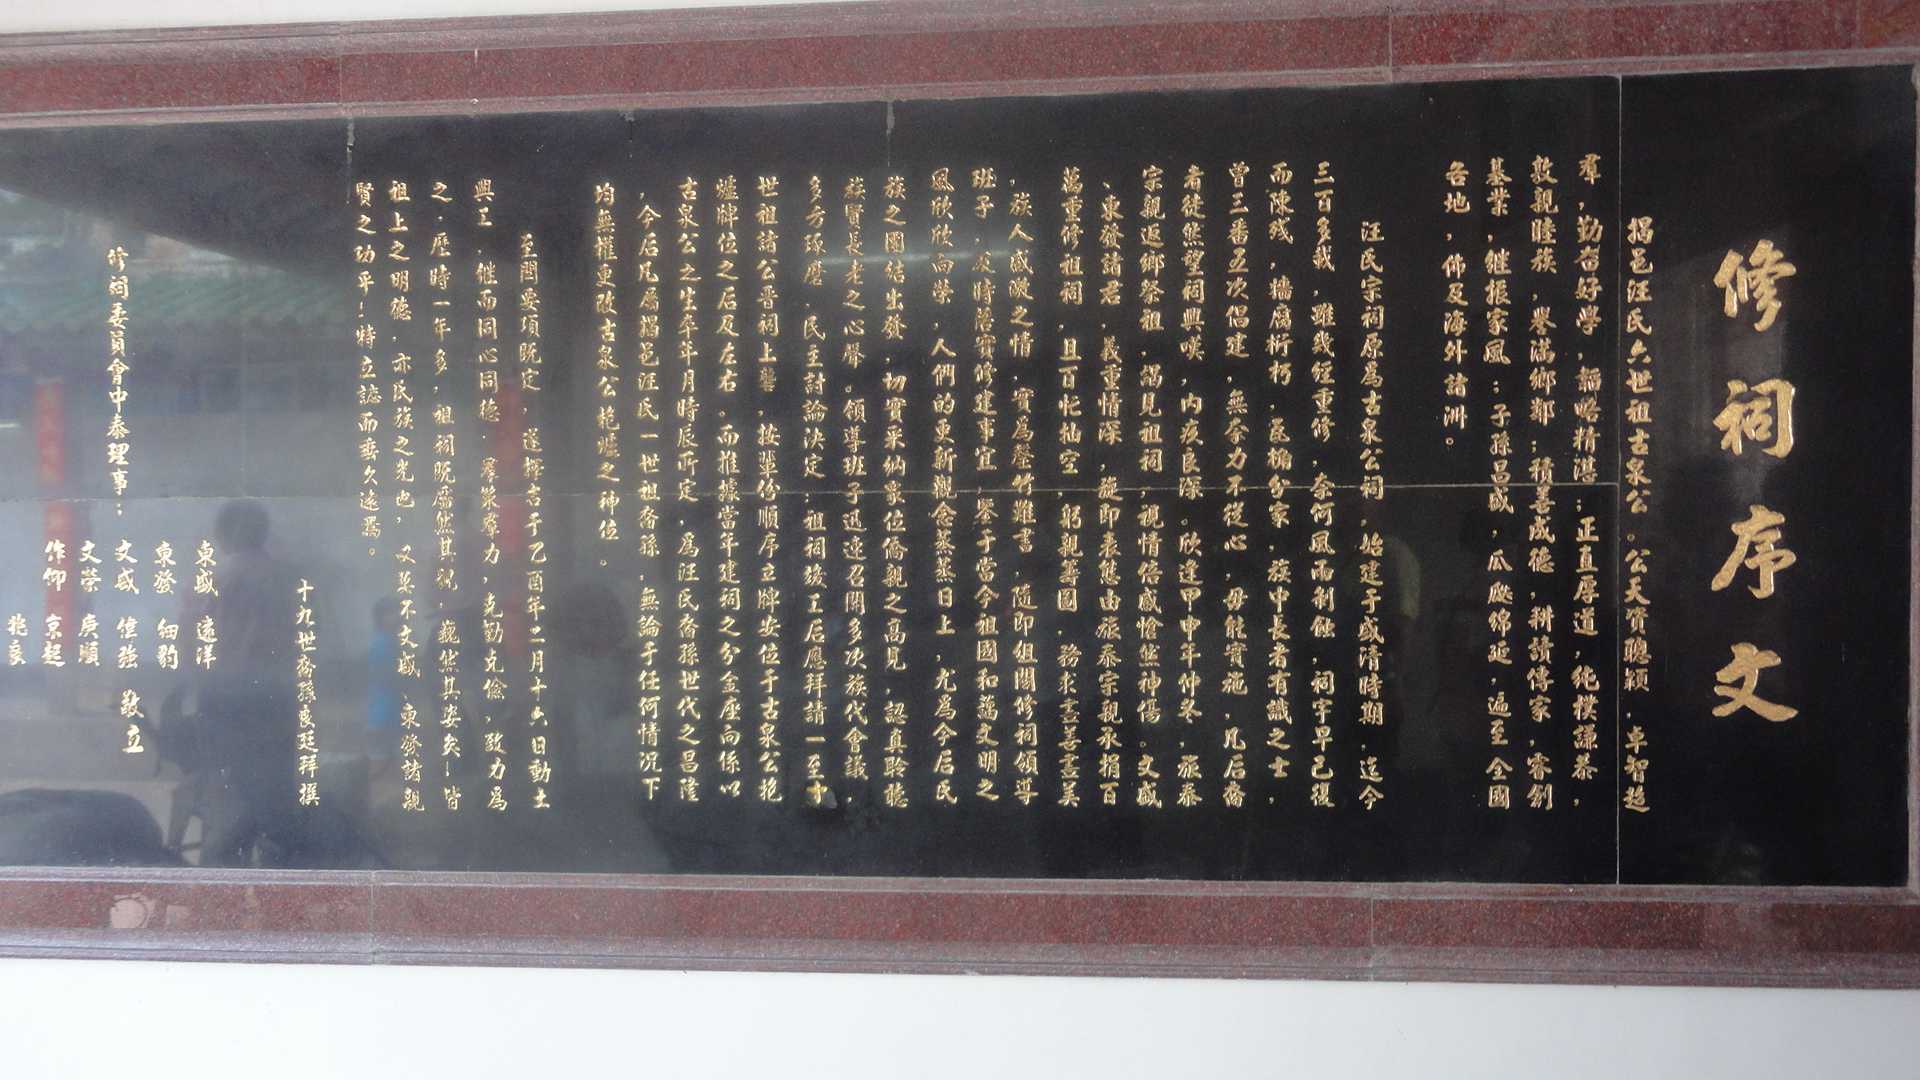 修祠序文
揭邑汪氏六世祖古泉公。公天資聰穎，卓智超
羣，勤奮好學，韜略精湛；正直厚道，純樸謙恭，
敦親睦族，譽滿鄉鄰；積善成德，耕讀傳家，睿創
基業，继振家風；子孫昌盛，瓜瓞綿延，遍至全國
各地，佈及海外諸洲。
汪氏宗祠原爲古泉公祠，始建于盛清時期，迄今
三百多載，雖幾經重修，奈何風雨剥蝕，祠宇早已復
而陳殘，墙腐桁朽，瓦桷分家，族中長者有識之士，
曾三番五次倡建，無奈力不從心，毋能實施，凡后裔
者徒然望祠興嘆，内疚良深。欣逢甲申年仲冬，旅泰
宗親返鄉祭祖，謁見祖祠，視情倍感愴然神傷。文盛
、東發諸君，義重情深，旋即表態由旅泰宗親承捐百
萬重修祖祠，且百忙抽空，躬親籌圖，務求盡善盡美
，族人感激之情，實爲罄竹難書，隨即組閣修祠領導
班子，及時落實修建事宜，譽于當今祖國和諧文明之
風欣欣向榮，人們的更新觀念蒸蒸日上，尤爲今后民
族之團结出發，切實采納象位僑親之高見，認真聆聽
族賢長老之心聲。領導班子迅速召開多次族代會議，
多方琢磨，民主討論決定：祖祠竣工后應拜請一至十
世祖諸公晋祠上龕，按輩份順序立牌安位于古泉公艳
爐牌位之后及左右。而推據當年建祠之分金座向係以
古泉公之生卒年月時辰所定，爲汪民裔孫世代之昌隆
，今后凡屬揭邑汪氏一世祖裔孫，無論于任何情况下
均無權更改古泉公艳爐之神位。
至閣要項既定，遂擇吉于乙酉年二月十六日動土
興工，继而同心同德，羣策羣力，克勤克儉，致力爲
之，歷時一年多，祖祠既屬然其貌，巍然其姿矣！皆
祖上之明德，亦民族之光也，又莫不文盛、東發諸親
賢之功乎！特立誌而垂久遠焉。
十九世裔孫良廷拜撰
修祠委員會中泰理事：
東盛 遠洋
東發 細豹
文盛 佳強 敬立
文榮 庚順
作仰 京起